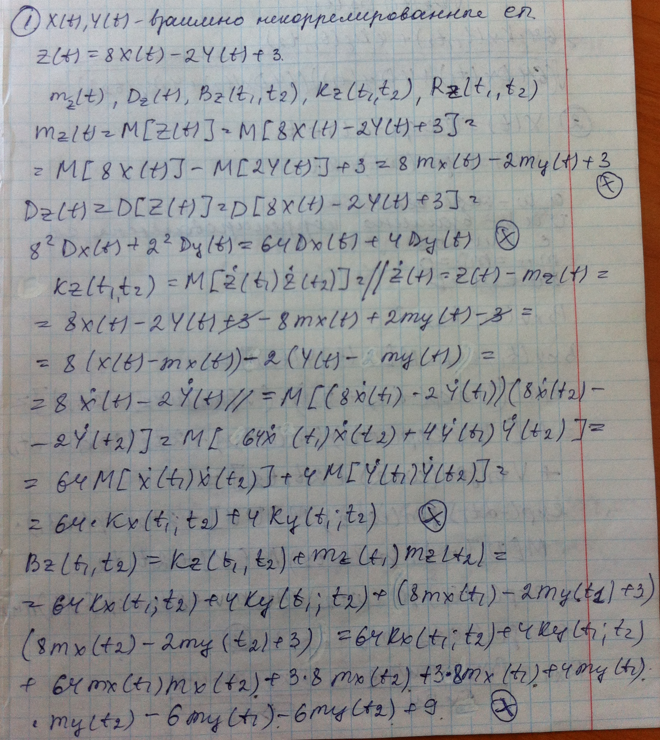 ① X(t), Y(t) - взаимно некоррелированные сп.
Z(t) = 8X(t) - 2Y(t) + 3.
mz(t), Dz(t), Bz(t₁,t₂), Kz(t₁,t₂), Rz(t₁,t₂)
mz(t) = M[Z(t)] = M[8X(t) - 2Y(t) + 3] =
= M[8X(t)] - M[2Y(t)] + 3 = 8mx(t) - 2my(t) + 3
ⓧ
Dz(t) = D[Z(t)] = D[8X(t) - 2Y(t) + 3] =
8² Dx(t) + 2² Dy(t) = 64Dx(t) + 4Dy(t) ⓧ
Kz(t₁,t₂) = M[Ż(t₁)Ż(t₂)] = // Ż(t) = Z(t) - mz(t) =
= 8X(t) - 2Y(t) + 3 - 8mx(t) + 2my(t) - 3 =
= 8(X(t) - mx(t)) - 2(Y(t) - my(t)) =
= 8Ẋ(t) - 2Ẏ(t) // = M[(8Ẋ(t₁) - 2Ẏ(t₁))(8Ẋ(t₂) -
- 2Ẏ(t₂)] = M[ 64Ẋ(t₁)Ẋ(t₂) + 4Ẏ(t₁)Ẏ(t₂)] =
= 64M[Ẋ(t₁)Ẋ(t₂)] + 4M[Ẏ(t₁)Ẏ(t₂)] =
= 64·Kx(t₁;t₂) + 4Ky(t₁;t₂) ⓧ
Bz(t₁,t₂) = Kz(t₁,t₂) + mz(t₁)mz(t₂) =
= 64Kx(t₁;t₂) + 4Ky(t₁;t₂) + (8mx(t₁) - 2my(t₁) + 3)
(8mx(t₂) - 2my(t₂) + 3) = 64Kx(t₁;t₂) + 4Ky(t₁;t₂)
+ 64mx(t₁)mx(t₂) + 3·8mx(t₂) + 3·8mx(t₁) + 4my(t₁)·
·my(t₂) - 6my(t₁) - 6my(t₂) + 9. ⓧ